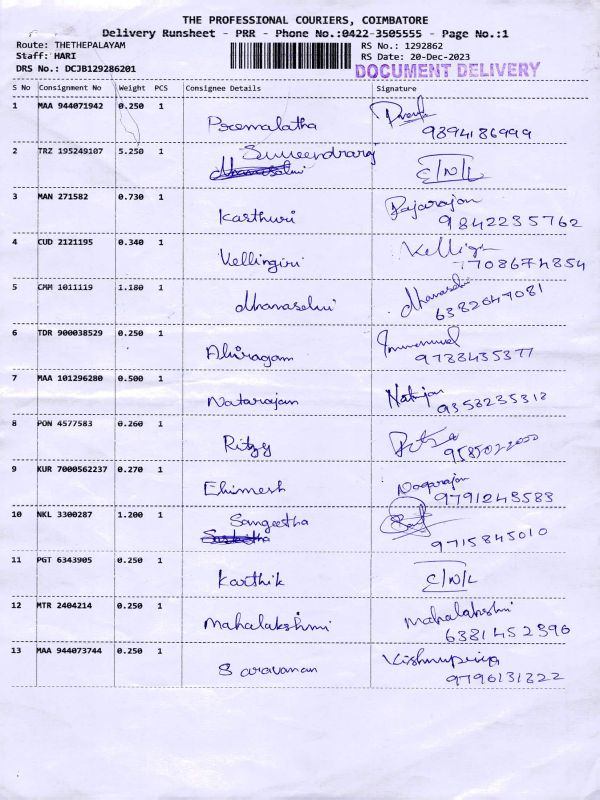 THE PROFESSIONAL COURIERS, COIMBATORE
Delivery Runsheet - PRR - Phone No.:0422-3505555 - Page No.:1
Route: THETHEPALAYAM RS No.: 1292862
Staff: HARI RS Date: 20-Dec-2023
DRS No.: DCJB129286201 DOCUMENT DELIVERY
S No Consignment No Weight PCS Consignee Details Signature
1 MAA 944071942 0.250 1
Premalatha 9894186999
2 TRZ 195249107 5.250 1
3 MAN 271582 0.730 1 Rajarajan
Kasthuri 9842235762
4 CUD 2121195 0.340 1
Vellingiri 7086774854
5 CMM 1011119 1.180 1
dhanaselvi 6382647081
6 TDR 900038529 0.250 1 Immanuel
9788435377
7 MAA 101296280 0.500 1
Natarajan 9358235312
8 PON 4577583 0.260 1
Ritzy
9 KUR 7000562237 0.270 1 Nagarajan
9791243583
10 NKL 3300287 1.200 1
Sangeetha
9715845010
11 PGT 6343905 0.250 1
Karthik
12 MTR 2404214 0.250 1 Mahalakshmi
Mahalakshmi 6381452396
13 MAA 944073744 0.250 1 Vishnupriya
Saravanan 9796131322